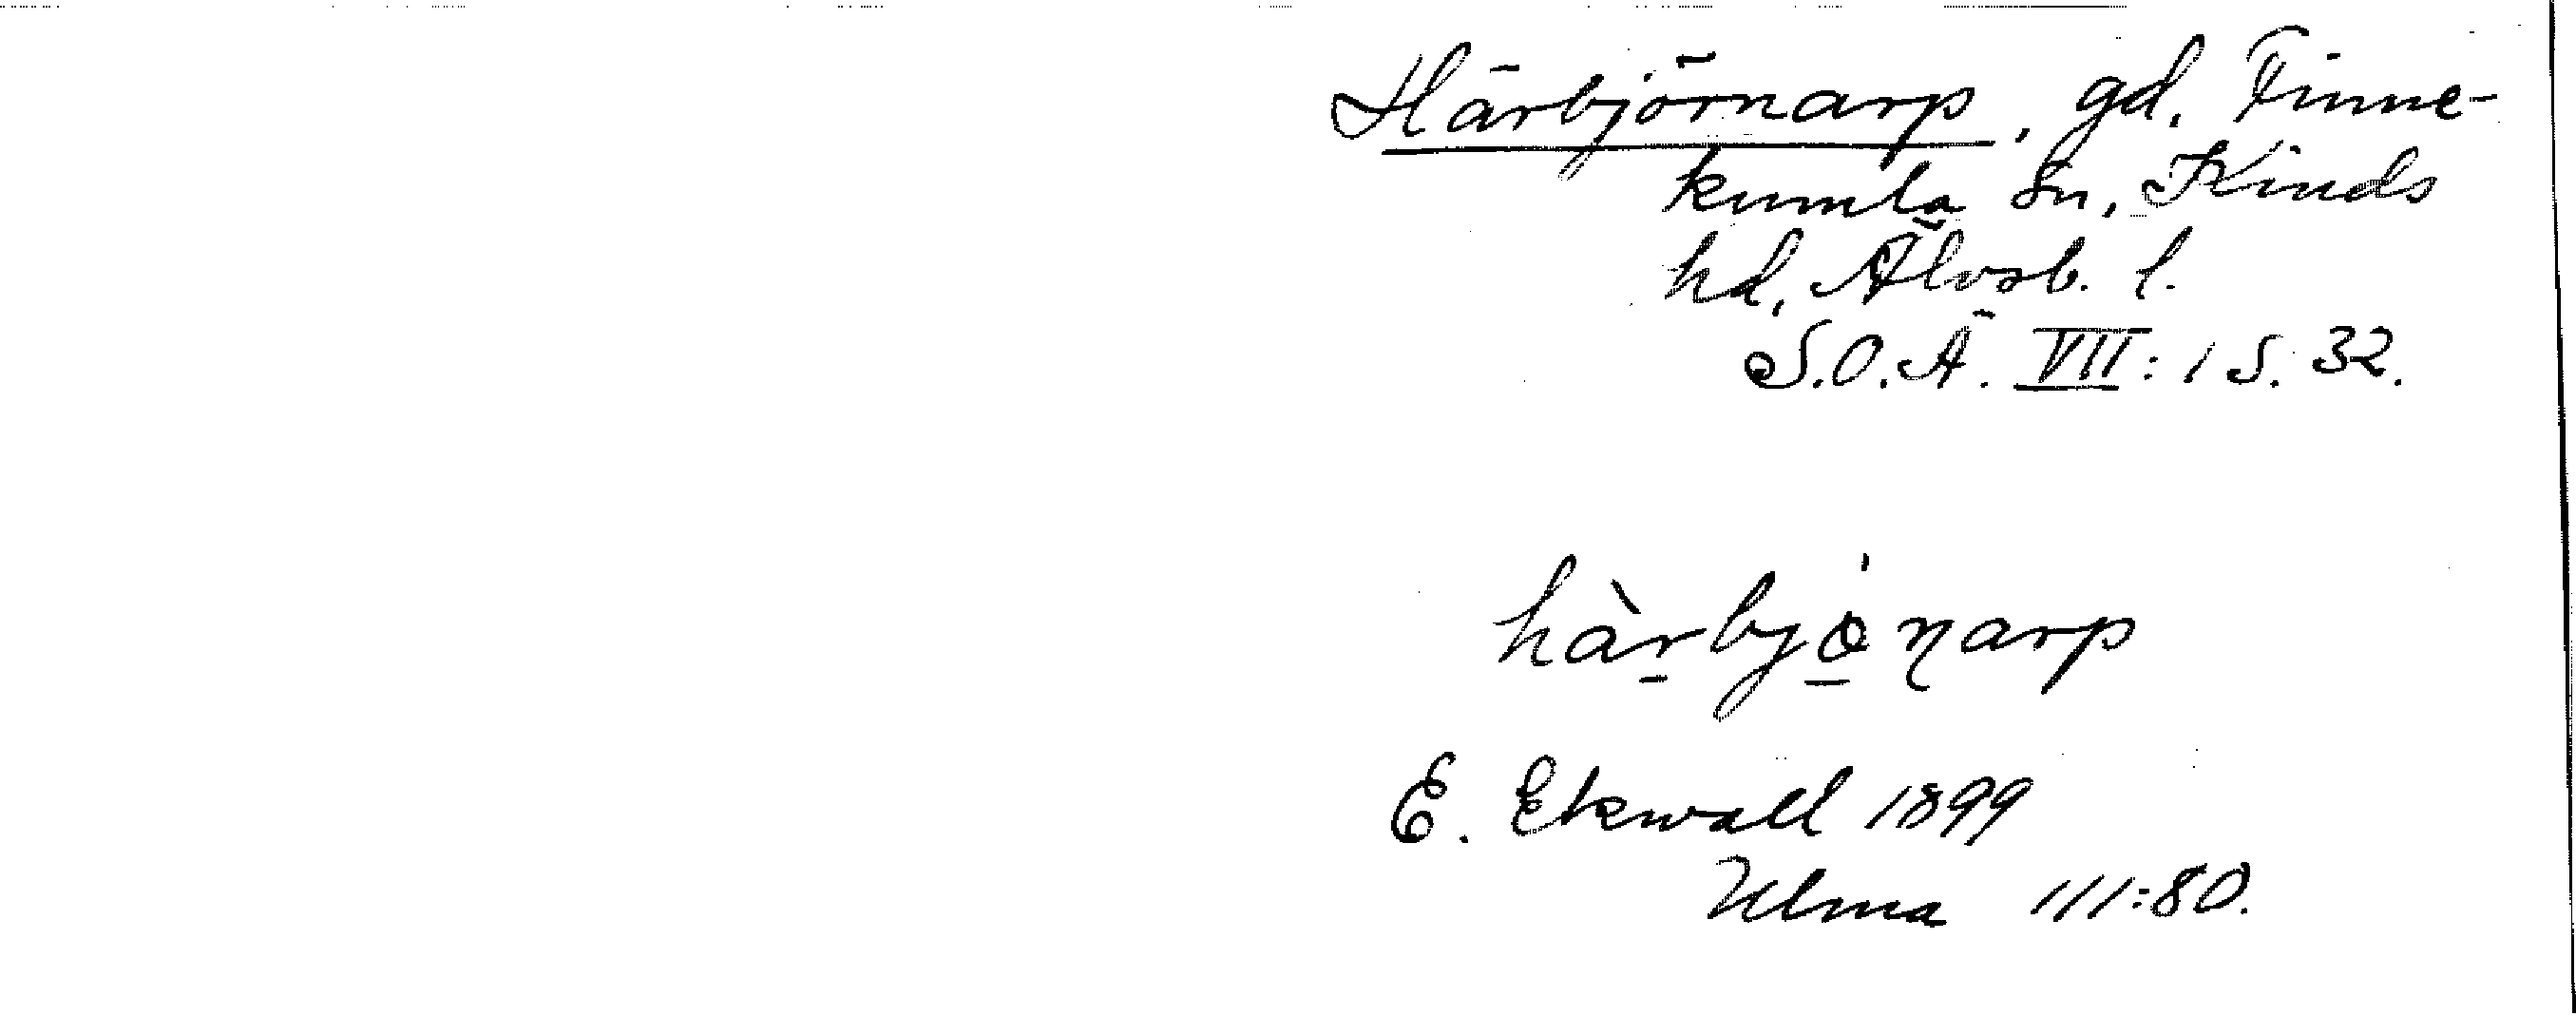 Härbjörnarp, gd, Finne-
kumla sn, Kinds
hd, Älvsb. l.
S.O.Ä. VII: 1 S. 32.
E. Ekwall 1899
Ulma 111:80.